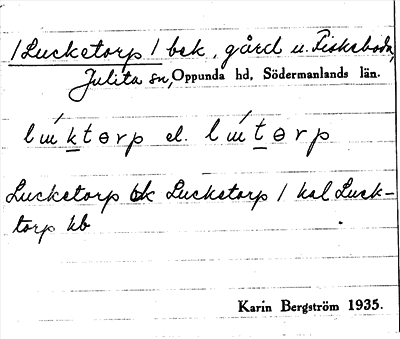 /Lucketorp/ bsk, gård u. Fiskeboda,
Julita sn, Oppunda hd, Södermanlands län.
lúktɵrp el. lútɵrp
Lucketorp Lucketorp / kal Luck-
torp kb
Karin Bergström 1935.